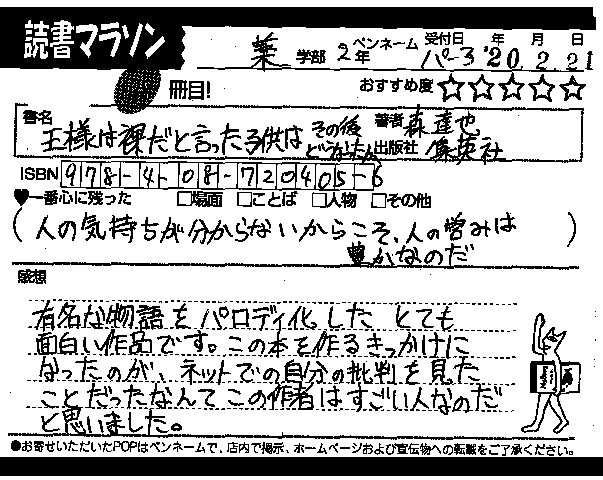 読書マラソン
薬 学部 2年 ペンネーム パーコ 受付日 '20 年 2 月 21 日
冊目! おすすめ度 ☆☆☆☆☆
書名 王様は裸だと言った子供は その後 どうなったか 著者 森達也
出版社 集英社
ISBN 978-4-08-720405-6
♥一番心に残った □場面 □ことば □人物 □その他
(人の気持ちが分からないからこそ、人の営みは
豊かなのだ)
感想
有名な物語をパロディ化した とても
面白い作品です。この本を作るきっかけに
なったのが、ネットでの自分の批判を見た
ことだったなんてこの作者はすごい人なのだ
と思いました。
●お寄せいただいたPOPはペンネームで、店内で掲示、ホームページおよび宣伝物への転載をご了承ください。